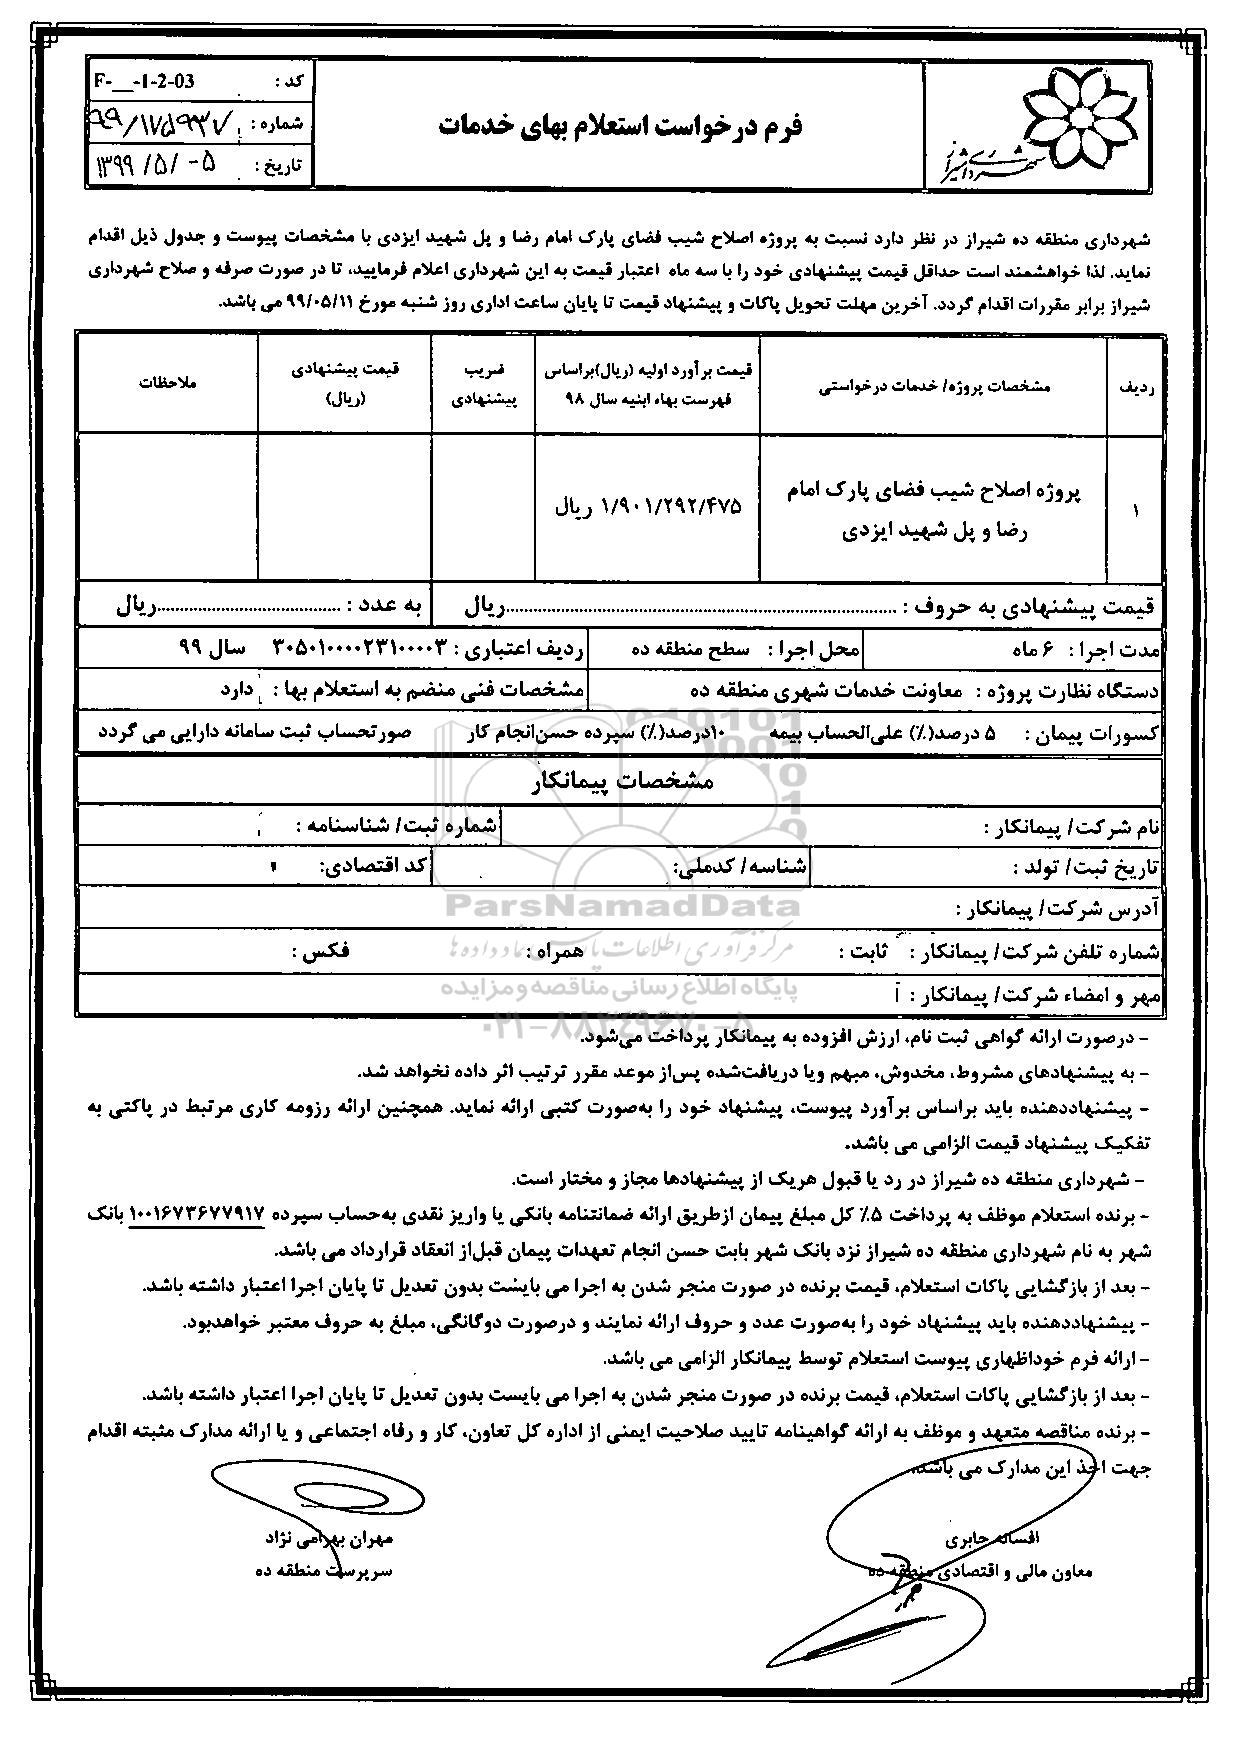 کد : F-__-1-2-03
شماره : ۹۹/۱۷۵۹۳۷
تاریخ : ۱۳۹۹/۵/-۵
فرم درخواست استعلام بهای خدمات
شهرداری شیراز
شهرداری منطقه ده شیراز در نظر دارد نسبت به پروژه اصلاح شیب فضای پارک امام رضا و پل شهید ایزدی با مشخصات پیوست و جدول ذیل اقدام
نماید. لذا خواهشمند است حداقل قیمت پیشنهادی خود را با سه ماه اعتبار قیمت به این شهرداری اعلام فرمایید، تا در صورت صرفه و صلاح شهرداری
شیراز برابر مقررات اقدام گردد. آخرین مهلت تحویل پاکات و پیشنهاد قیمت تا پایان ساعت اداری روز شنبه مورخ ۹۹/۰۵/۱۱ می باشد.
ردیف
مشخصات پروژه/ خدمات درخواستی
قیمت برآورد اولیه (ریال)براساس
فهرست بهاء ابنیه سال ۹۸
ضریب
پیشنهادی
قیمت پیشنهادی
(ریال)
ملاحظات
۱
پروژه اصلاح شیب فضای پارک امام
رضا و پل شهید ایزدی
۱/۹۰۱/۲۹۲/۴۷۵ ریال
قیمت پیشنهادی به حروف : ..........ریال به عدد : ..........ریال
مدت اجرا : ۶ ماه محل اجرا : سطح منطقه ده ردیف اعتباری : ۳۰۵۰۱۰۰۰۰۲۳۱۰۰۰۰۳ سال ۹۹
دستگاه نظارت پروژه : معاونت خدمات شهری منطقه ده مشخصات فنی منضم به استعلام بها : دارد
کسورات پیمان : ۵ درصد(٪) علی‌الحساب بیمه ۱۰درصد(٪) سپرده حسن‌انجام کار صورتحساب ثبت سامانه دارایی می گردد
مشخصات پیمانکار
نام شرکت/ پیمانکار : شماره ثبت/ شناسنامه :
تاریخ ثبت/ تولد : شناسه/ کدملی: کد اقتصادی:
آدرس شرکت/ پیمانکار :
شماره تلفن شرکت/ پیمانکار : ثابت : همراه : فکس :
مهر و امضاء شرکت/ پیمانکار :
ParsNamadData
مرکز فرآوری اطلاعات پارس نماد داده ها
پایگاه اطلاع رسانی مناقصه و مزایده
۰۲۱-۸۸۳۴۹۶۷۰-۵
- درصورت ارائه گواهی ثبت نام، ارزش افزوده به پیمانکار پرداخت می‌شود.
- به پیشنهادهای مشروط، مخدوش، مبهم ویا دریافت‌شده پس‌از موعد مقرر ترتیب اثر داده نخواهد شد.
- پیشنهاددهنده باید براساس برآورد پیوست، پیشنهاد خود را به‌صورت کتبی ارائه نماید. همچنین ارائه رزومه کاری مرتبط در پاکتی به
تفکیک پیشنهاد قیمت الزامی می باشد.
- شهرداری منطقه ده شیراز در رد یا قبول هریک از پیشنهادها مجاز و مختار است.
- برنده استعلام موظف به پرداخت ۵٪ کل مبلغ پیمان ازطریق ارائه ضمانتنامه بانکی یا واریز نقدی به‌حساب سپرده ۱۰۰۱۶۷۳۶۷۷۹۱۷ بانک
شهر به نام شهرداری منطقه ده شیراز نزد بانک شهر بابت حسن انجام تعهدات پیمان قبل‌از انعقاد قرارداد می باشد.
- بعد از بازگشایی پاکات استعلام، قیمت برنده در صورت منجر شدن به اجرا می بایست بدون تعدیل تا پایان اجرا اعتبار داشته باشد.
- پیشنهاددهنده باید پیشنهاد خود را به‌صورت عدد و حروف ارائه نمایند و درصورت دوگانگی، مبلغ به حروف معتبر خواهدبود.
- ارائه فرم خوداظهاری پیوست استعلام توسط پیمانکار الزامی می باشد.
- بعد از بازگشایی پاکات استعلام، قیمت برنده در صورت منجر شدن به اجرا می بایست بدون تعدیل تا پایان اجرا اعتبار داشته باشد.
- برنده مناقصه متعهد و موظف به ارائه گواهینامه تایید صلاحیت ایمنی از اداره کل تعاون، کار و رفاه اجتماعی و یا ارائه مدارک مثبته اقدام
جهت اخذ این مدارک می باشد.
افسانه جابری
معاون مالی و اقتصادی منطقه ده
مهران بهرامی نژاد
سرپرست منطقه ده